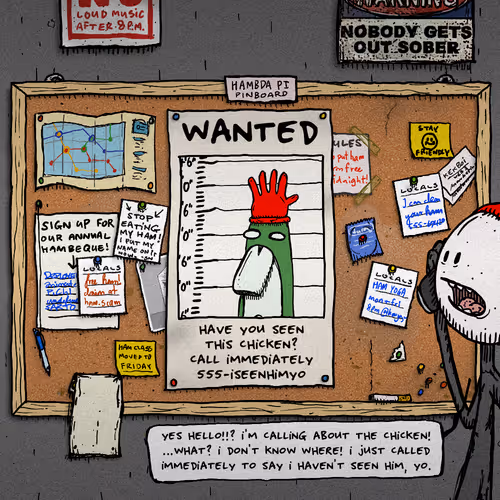 LOUD MUSIC
AFTER 8 P.M.
WARNING
NOBODY GETS
OUT SOBER
HAMBDA PI
PINBOARD
WANTED
HAVE YOU SEEN
THIS CHICKEN?
CALL IMMEDIATELY
555-ISEENHIMYO
SIGN UP FOR
OUR ANNUAL
HAMBEQUE!
STOP
EATING
MY HAM!
I PUT MY
NAME ON IT
LOCALS
HAM CLASS
MOVED TO
FRIDAY
STAY
FRIENDLY
LOCALS
I can clean
your ham
LOCALS
HAM YOGA
YES HELLO!!? I'M CALLING ABOUT THE CHICKEN!
...WHAT? I DON'T KNOW WHERE! I JUST CALLED
IMMEDIATELY TO SAY I HAVEN'T SEEN HIM, YO.